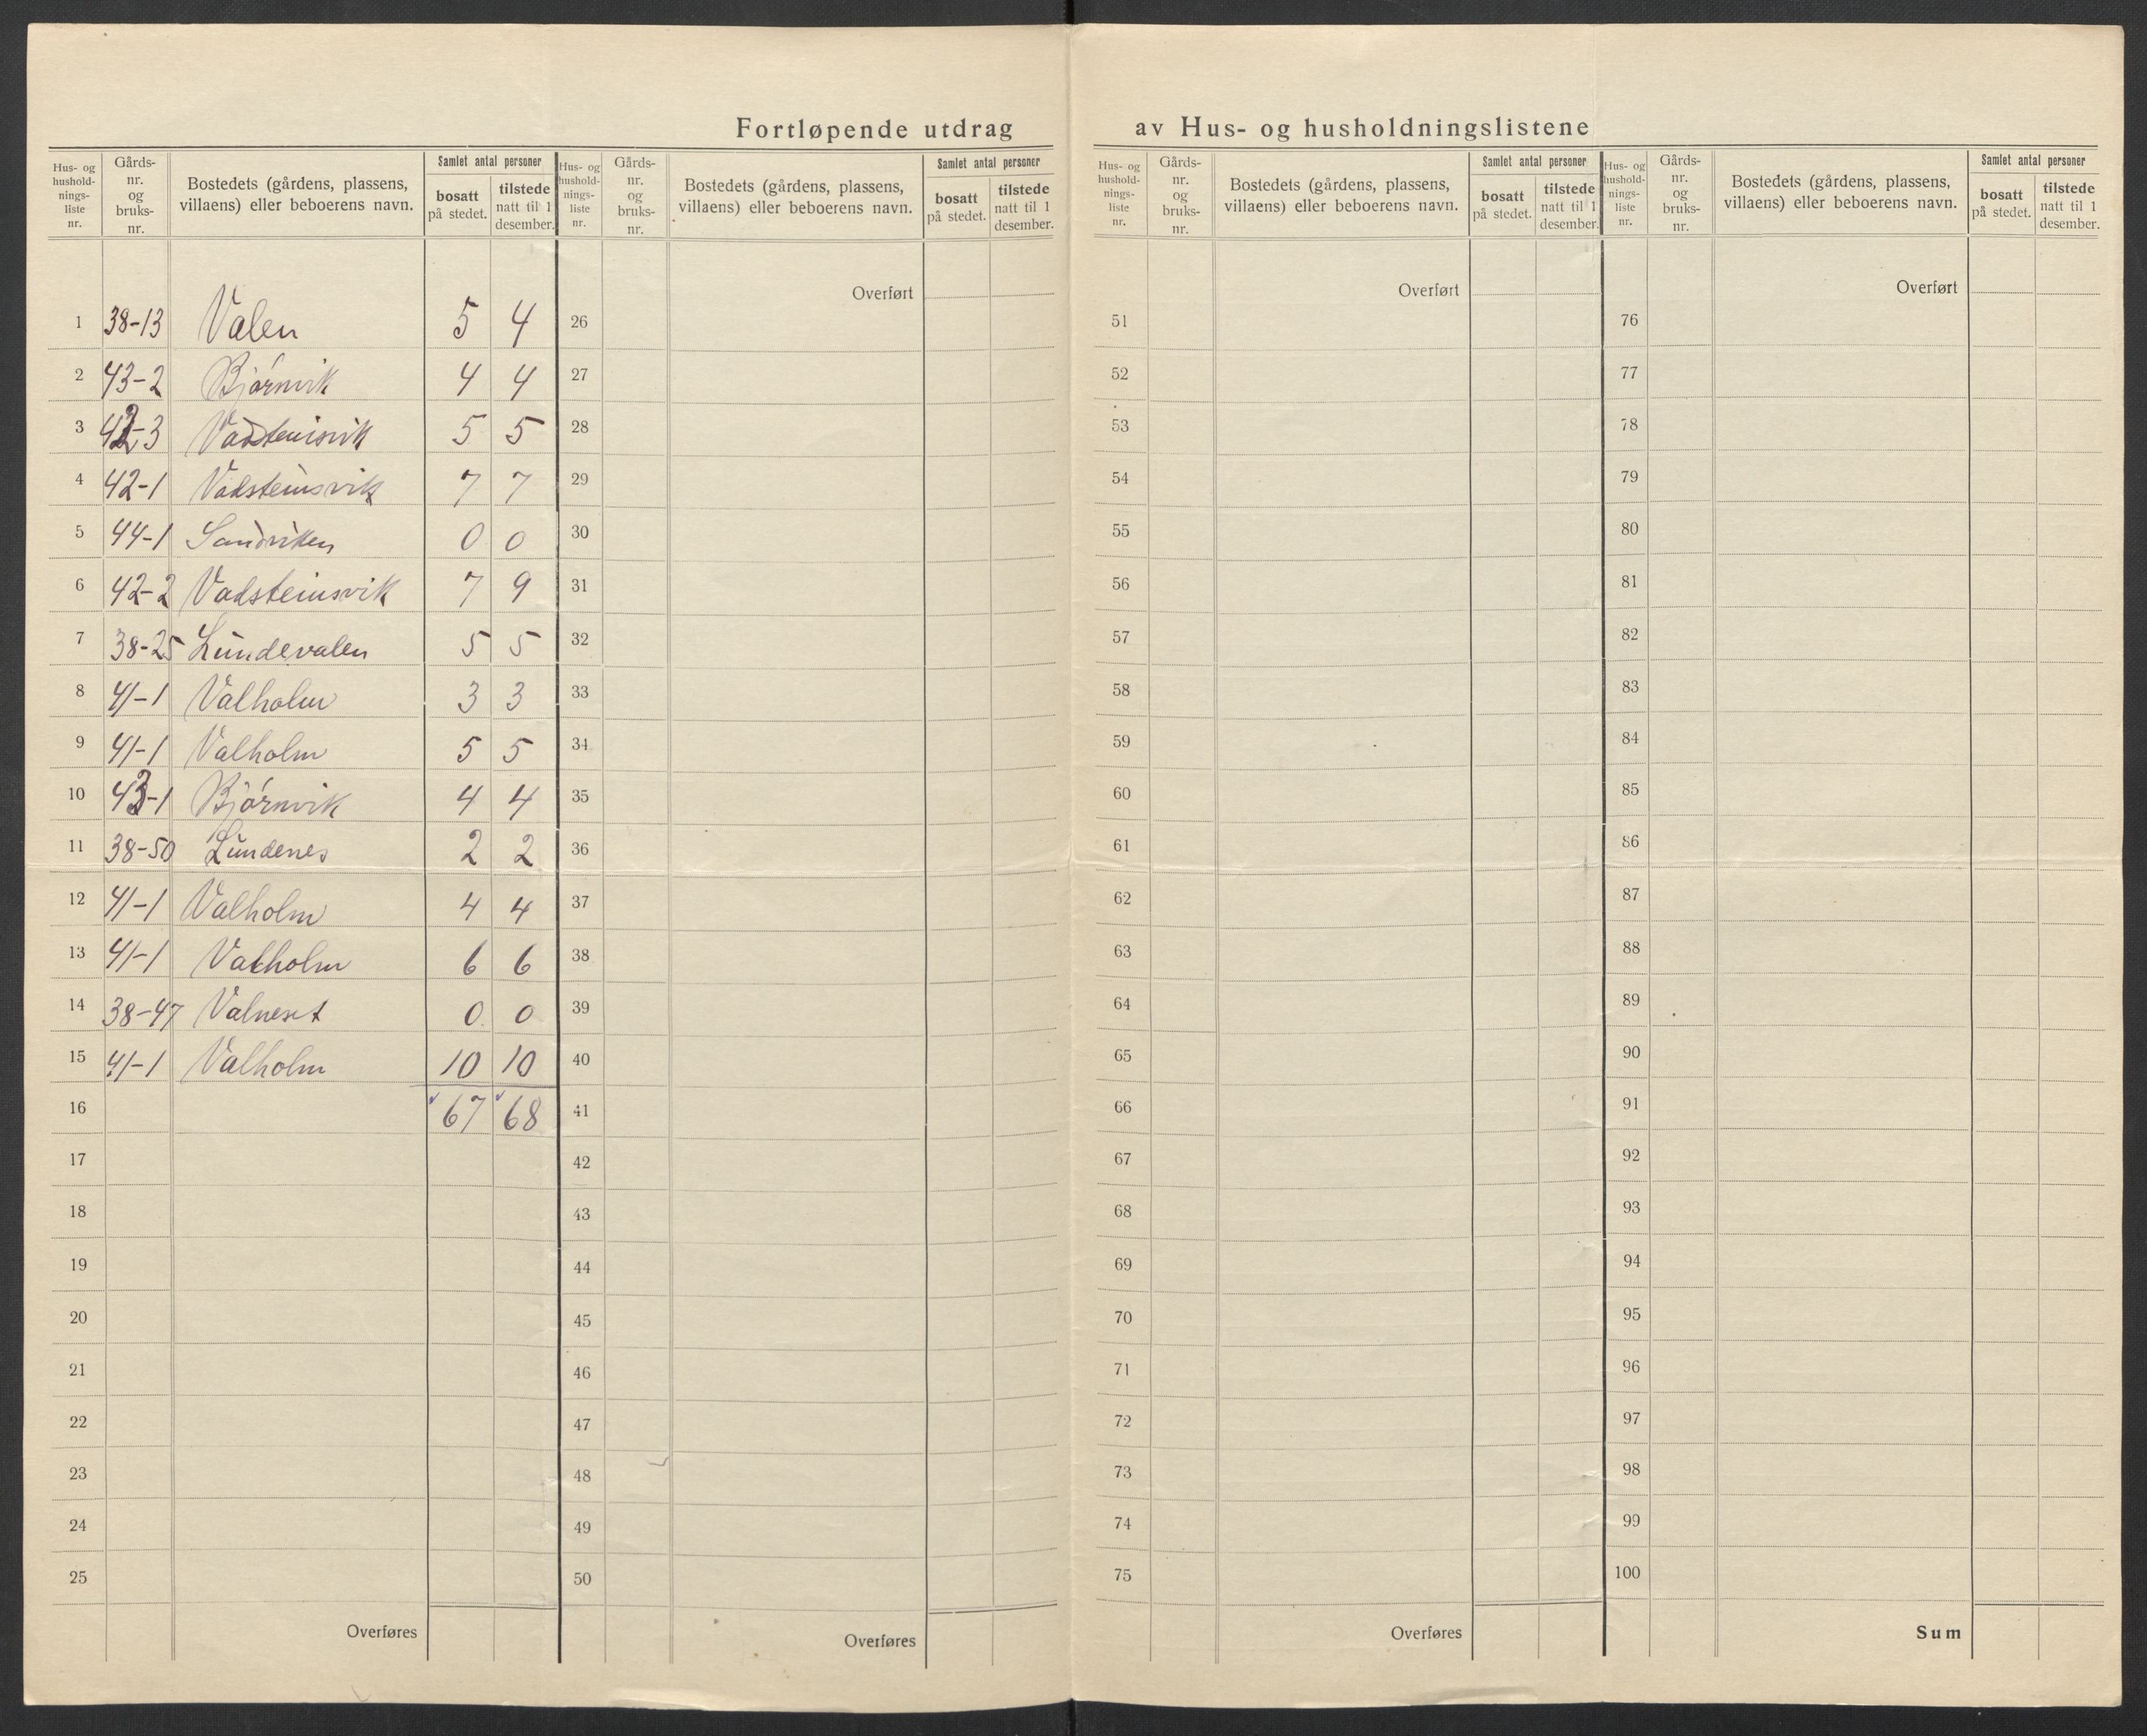 Fortløpende utdrag av Hus- og husholdningslistene
Hus- og hushold- nings- liste nr. | Gårds- nr. og bruks- nr. | Bostedets (gårdens, plassens, villaens) eller beboerens navn. | Samlet antal personer | bosatt på stedet. | tilstede natt til 1 desember.
Hus- og hushold- nings- liste nr. | Gårds- nr. og bruks- nr. | Bostedets (gårdens, plassens, villaens) eller beboerens navn. | Samlet antal personer | bosatt på stedet. | tilstede natt til 1 desember.
Hus- og hushold- nings- liste nr. | Gårds- nr. og bruks- nr. | Bostedets (gårdens, plassens, villaens) eller beboerens navn. | Samlet antal personer | bosatt på stedet. | tilstede natt til 1 desember.
Hus- og hushold- nings- liste nr. | Gårds- nr. og bruks- nr. | Bostedets (gårdens, plassens, villaens) eller beboerens navn. | Samlet antal personer | bosatt på stedet. | tilstede natt til 1 desember.
1 38-13 Valen 5 4
2 43-2 Bjórnvik 4 4
3 42-3 Vadsteinsvik 5 5
4 42-1 Vadsteinsvik 7 7
5 44-1 Sandviken 0 0
6 42-2 Vadsteinsvik 7 9
7 38-25 Lundevalen 5 5
8 41-1 Valholm 3 3
9 41-1 Valholm 5 5
10 43-1 Bjórnvik 4 4
11 38-50 Lundenes 2 2
12 41-1 Valholm 4 4
13 41-1 Valholm 6 6
14 38-47 Valneset 0 0
15 41-1 Valholm 10 10
16 67 68
17
18
19
20
21
22
23
24
25
Overføres
Overført
26
27
28
29
30
31
32
33
34
35
36
37
38
39
40
41
42
43
44
45
46
47
48
49
50
Overføres
Overført
51
52
53
54
55
56
57
58
59
60
61
62
63
64
65
66
67
68
69
70
71
72
73
74
75
Overføres
Overført
76
77
78
79
80
81
82
83
84
85
86
87
88
89
90
91
92
93
94
95
96
97
98
99
100
Sum